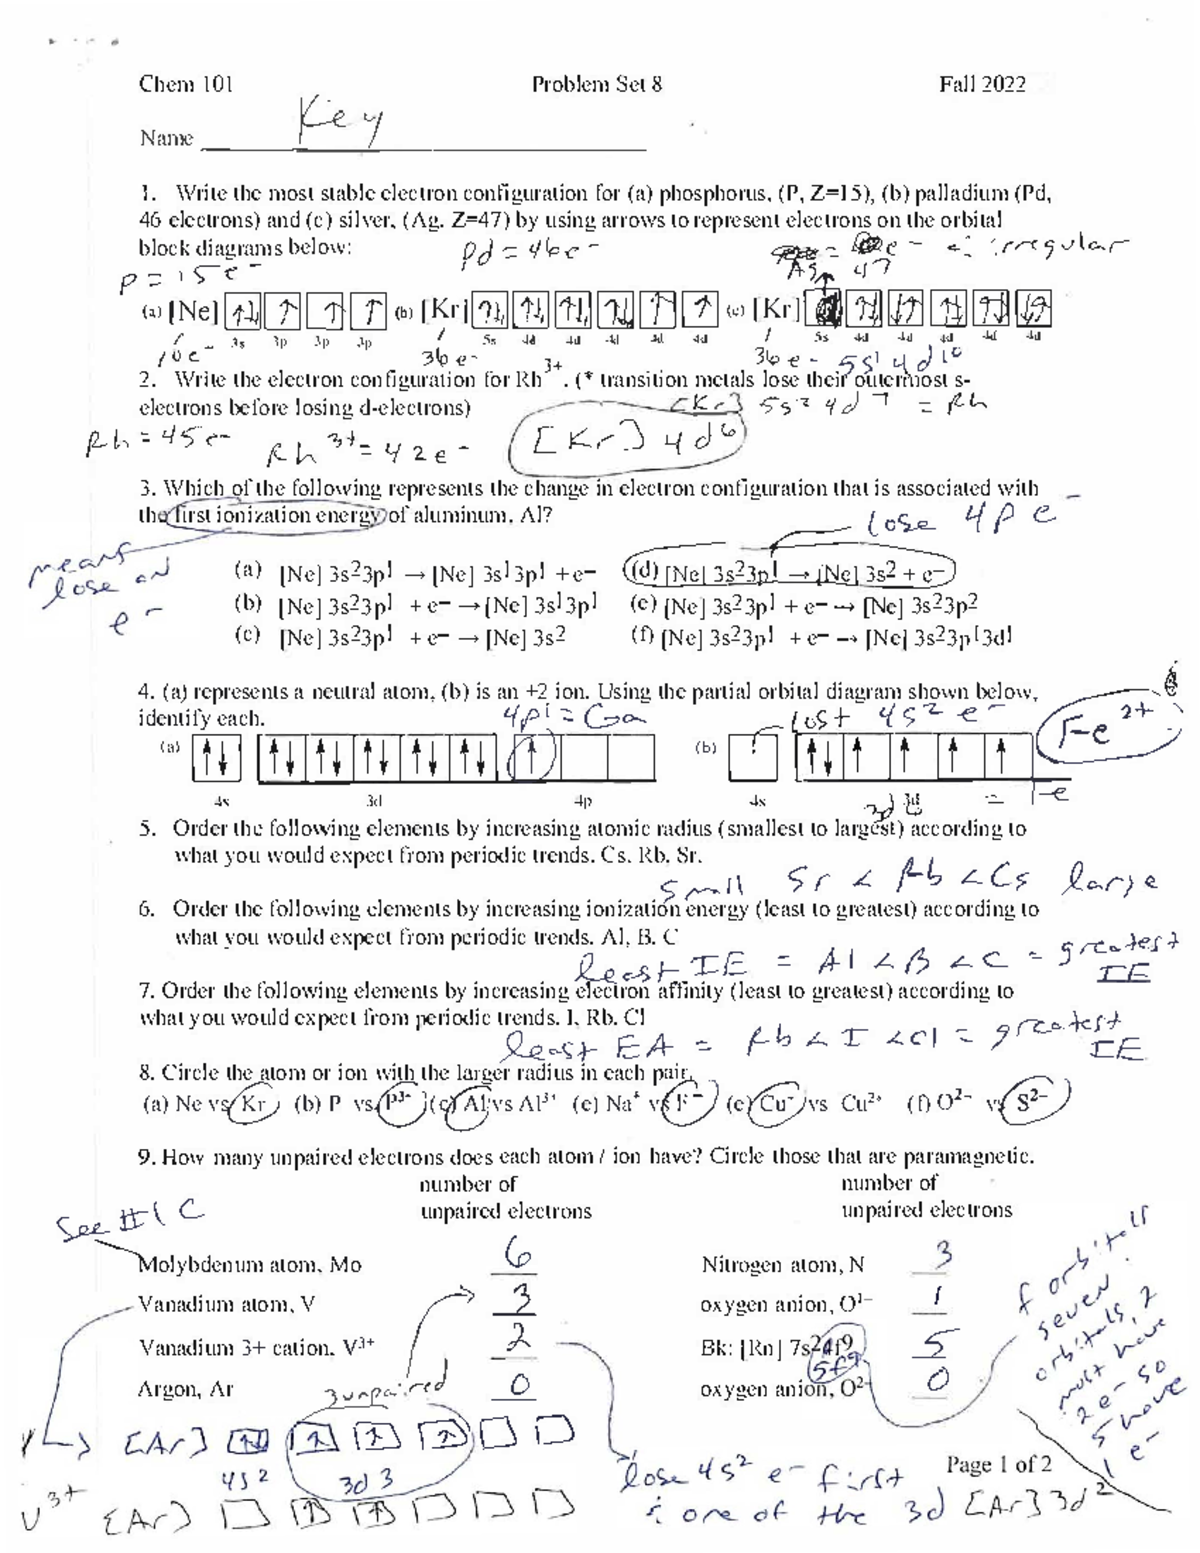 Chem 101 Problem Set 8 Fall 2022
Name Key
1. Write the most stable electron configuration for (a) phosphorus, (P, Z=15), (b) palladium (Pd,
46 electrons) and (c) silver, (Ag, Z=47) by using arrows to represent electrons on the orbital
block diagrams below:
P = 15 e- Pd = 46 e- Ag = 47 e- irregular
(a) [Ne] ↑↓ ↑ ↑ ↑ (b) [Kr] ↑↓ ↑↓ ↑↓ ↑↓ ↑ ↑ (c) [Kr] ↑ ↑↓ ↑↓ ↑↓ ↑↓ ↑↓
3s 3p 3p 3p 5s 4d 4d 4d 4d 4d 5s 4d 4d 4d 4d 4d
10 e- 36 e- 36 e- 5s¹ 4d¹⁰
2. Write the electron configuration for Rh³⁺. (* transition metals lose their outermost s-
electrons before losing d-electrons)
[Kr] 5s² 4d⁷ = Rh
Rh = 45 e- Rh³⁺ = 42 e- [Kr] 4d⁶
3. Which of the following represents the change in electron configuration that is associated with
the first ionization energy of aluminum, Al?
lose 4p e-
means lose an e-
(a) [Ne] 3s²3p¹ → [Ne] 3s¹3p¹ + e– (d) [Ne] 3s²3p¹ → [Ne] 3s² + e–
(b) [Ne] 3s²3p¹ + e– → [Ne] 3s¹3p¹ (e) [Ne] 3s²3p¹ + e– → [Ne] 3s²3p²
(c) [Ne] 3s²3p¹ + e– → [Ne] 3s² (f) [Ne] 3s²3p¹ + e– → [Ne] 3s²3p¹3d¹
4. (a) represents a neutral atom, (b) is an +2 ion. Using the partial orbital diagram shown below,
identify each.
4p¹ = Ga lost 4s² e- Fe²⁺
(a) ↑↓ ↑↓ ↑↓ ↑↓ ↑↓ ↑↓ ↑ (b) ↑↓ ↑ ↑ ↑ ↑
4s 3d 4p 4s 3d = Fe
3d⁶
5. Order the following elements by increasing atomic radius (smallest to largest) according to
what you would expect from periodic trends. Cs, Rb, Sr.
small Sr < Rb < Cs large
6. Order the following elements by increasing ionization energy (least to greatest) according to
what you would expect from periodic trends. Al, B, C
least IE = Al < B < C = greatest IE
7. Order the following elements by increasing electron affinity (least to greatest) according to
what you would expect from periodic trends. I, Rb, Cl
least EA = Rb < I < Cl = greatest IE
8. Circle the atom or ion with the larger radius in each pair.
(a) Ne vs Kr (b) P vs. P³⁻ (c) Al vs Al³⁺ (e) Na⁺ vs F⁻ (e) Cu⁺ vs Cu²⁺ (f) O²⁻ vs S²⁻
9. How many unpaired electrons does each atom / ion have? Circle those that are paramagnetic.
number of number of
unpaired electrons unpaired electrons
See #1 C
Molybdenum atom, Mo 6 Nitrogen atom, N 3
Vanadium atom, V 3 oxygen anion, O¹⁻ 1
Vanadium 3+ cation, V³⁺ 2 Bk: [Rn] 7s²4f9 5
5f9
Argon, Ar 0 oxygen anion, O²⁻ 0
f orbitals
seven
orbitals, 2
must have
2 e- so
5 have
1 e-
3 unpaired
V → [Ar] ↑↓ ↑ ↑ ↑
4s² 3d 3
V³⁺ [Ar] ↑ ↑
Page 1 of 2
lose 4s² e- first
& one of the 3d [Ar] 3d²